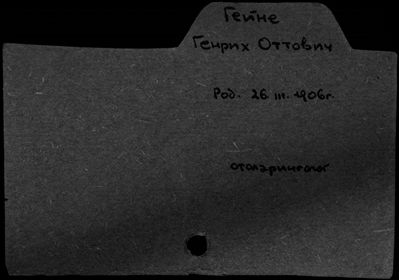 Гейне
Генрих Оттович
Род. 26.III.1906г.
отоларинголог